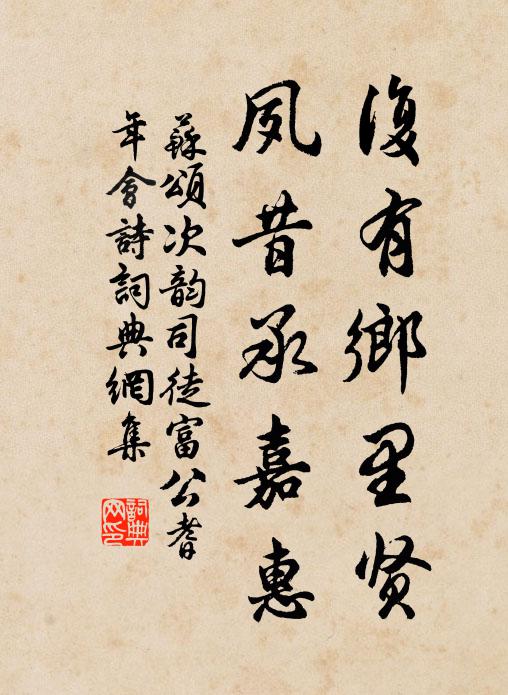 復有鄉里賢
夙昔承嘉惠
蘇頌次韵司徒富公耆
年會詩詞典網集
詞典网印